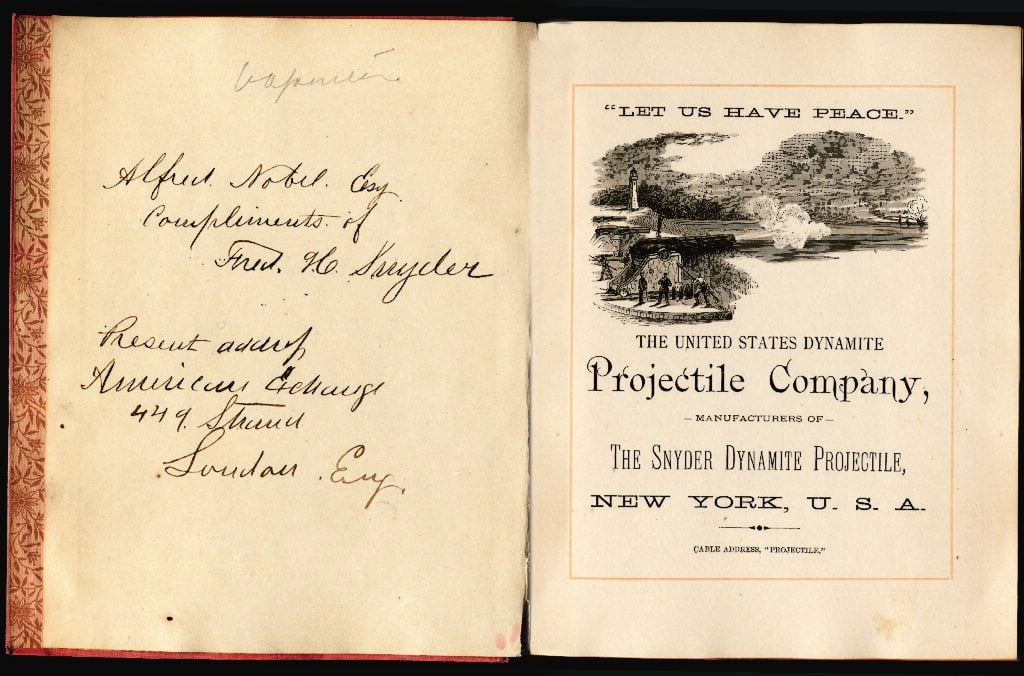 Alfred. Nobel. Esq
Compliments of
Fred. H. Snyder
Present address
American Exchange
449. Strand
London. Eng.
"LET US HAVE PEACE."
THE UNITED STATES DYNAMITE
Projectile Company,
– MANUFACTURERS OF –
THE SNYDER DYNAMITE PROJECTILE,
NEW YORK, U. S. A.
CABLE ADDRESS, "PROJECTILE,"